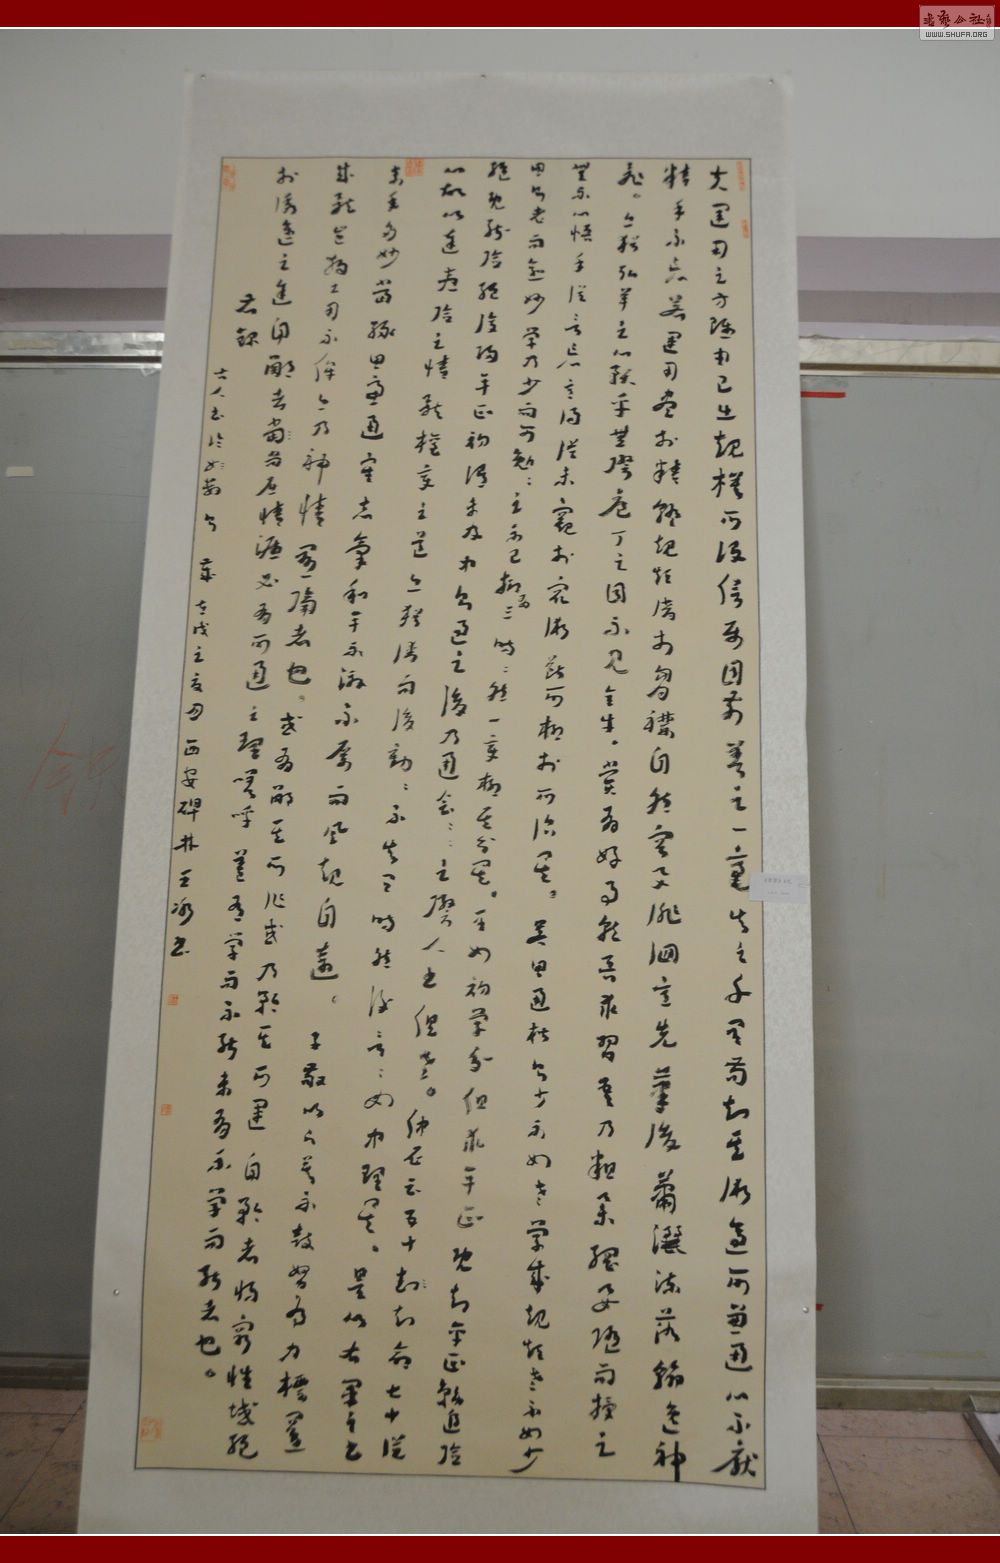 夫運用之方雖由己出規模所設信屬目前差之一毫失之千里苟知其術適可兼通心不厭
精手不忘若運用盡於精熟規矩諳於胸襟自然容與徘徊意先筆後瀟灑流落翰逸神
飛。亦猶弘羊之心預乎無際庖丁之目不見全牛。嘗有好事就吾求習吾乃粗舉綱要隨而授之
無不心悟手從言忘意得縱未窮於眾術斷可極於所詣矣。若思通楷則少不如老學成規矩老不如少
思則老而逾妙學乃少而可勉〻之不已抑有三時〻然一變極其分矣。至如初學分布但求平正既知平正務追險
絕既能險絕復歸平正初謂未及中則過之後乃通會〻之際人書俱老。仲尼云五十知命七十從
心故以達夷險之情體權變之道亦猶謀而後動〻不失宜時然後言〻必中理矣。是以右軍之書
末年多妙當緣思慮通審志氣和平不激不厲而風規自遠。子敬以下莫不鼓努為力標置
成體豈獨工用不侔亦乃神情懸隔者也。或有鄙其所作或乃矜其所運自矜者將窮性域絕
於誘進之途自鄙者尚屈情涯必有可通之理嗟乎蓋有學而不能未有不學而能者也。
右錄
古人書論 歲在戊之夏月西安碑林王 書
WWW.SHUFA.ORG